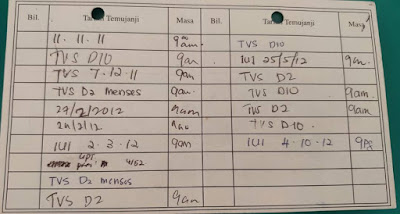 Bil. Tarikh Temujanji Masa
11. 11. 11 9am
TVS D10 9am
TVS 7.12.11 9am
TVS D2 menses 9am
29/2/2012 9am
2/12
IUI 2.3.12 9am
UPT
TVS D2 menses
TVS D2 9am
Bil. Tarikh Temujanji Masa
TVS D10
IUI 25/5/12 9am
TVS D2
TVS D10 9am
TVS D2 9am
TVS D10.
IUI 4.10.12